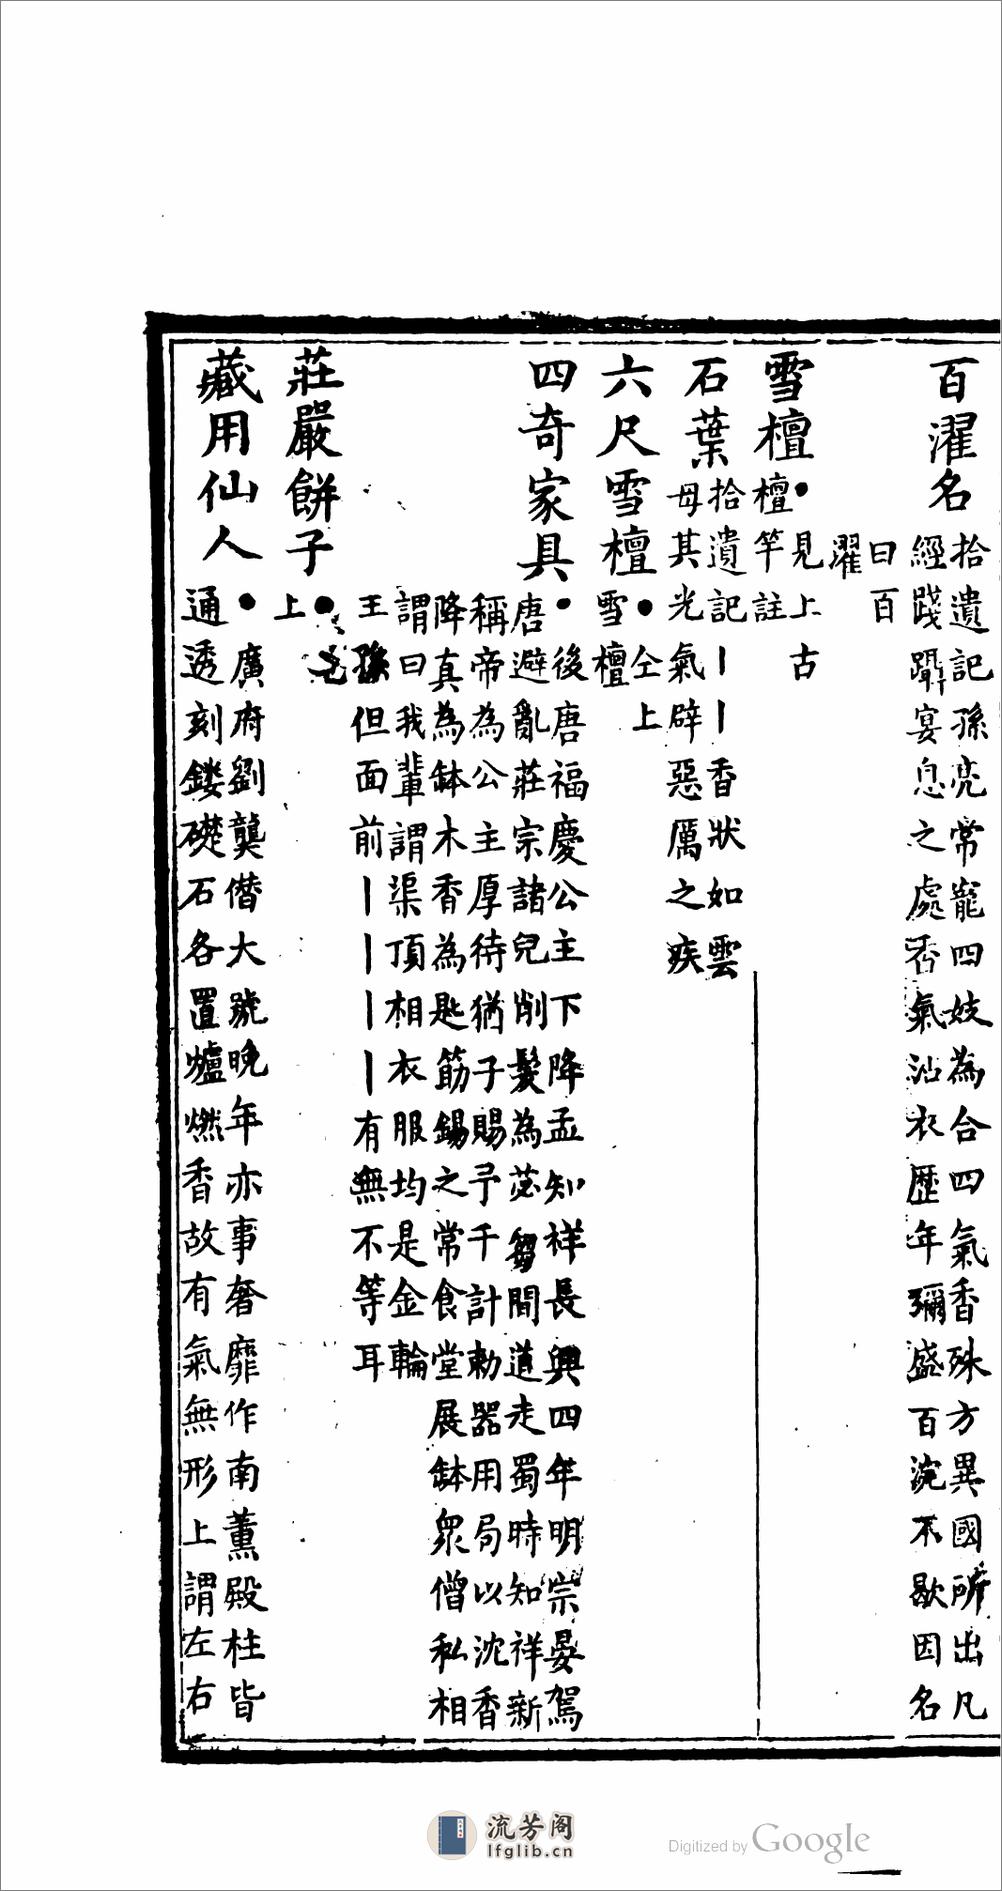 百濯名
拾遺記孫亮常寵四妓為合四氣香殊方異國所出凡
經踐躡宴息之處香氣沾衣歷年彌盛百浣不歇因名
曰百
濯
雪檀
●見上古
檀竿註
石葉
拾遺記丨丨香狀如雲
母其光氣辟惡厲之疾
六尺雪檀
●仝上
雪檀
四奇家具
●後唐福慶公主下降孟知祥長興四年明宗晏駕
唐避亂莊宗諸兒削髮為苾芻間道走蜀時知祥新
稱帝為公主厚待猶子賜予千計勅器用局以沈香
降真為鉢木香為匙筯錫之常食堂展鉢眾僧私相
謂曰我輩謂渠頂相衣服均是金輪
王孫但面前丨丨丨丨有無不等耳
莊嚴餅子
●
上
藏用仙人
●廣府劉龑僭大號晚年亦事奢靡作南薰殿柱皆
通透刻鏤礎石各置爐燃香故有氣無形上謂左右
流芳阁
lfglib.cn
Digitized by Google